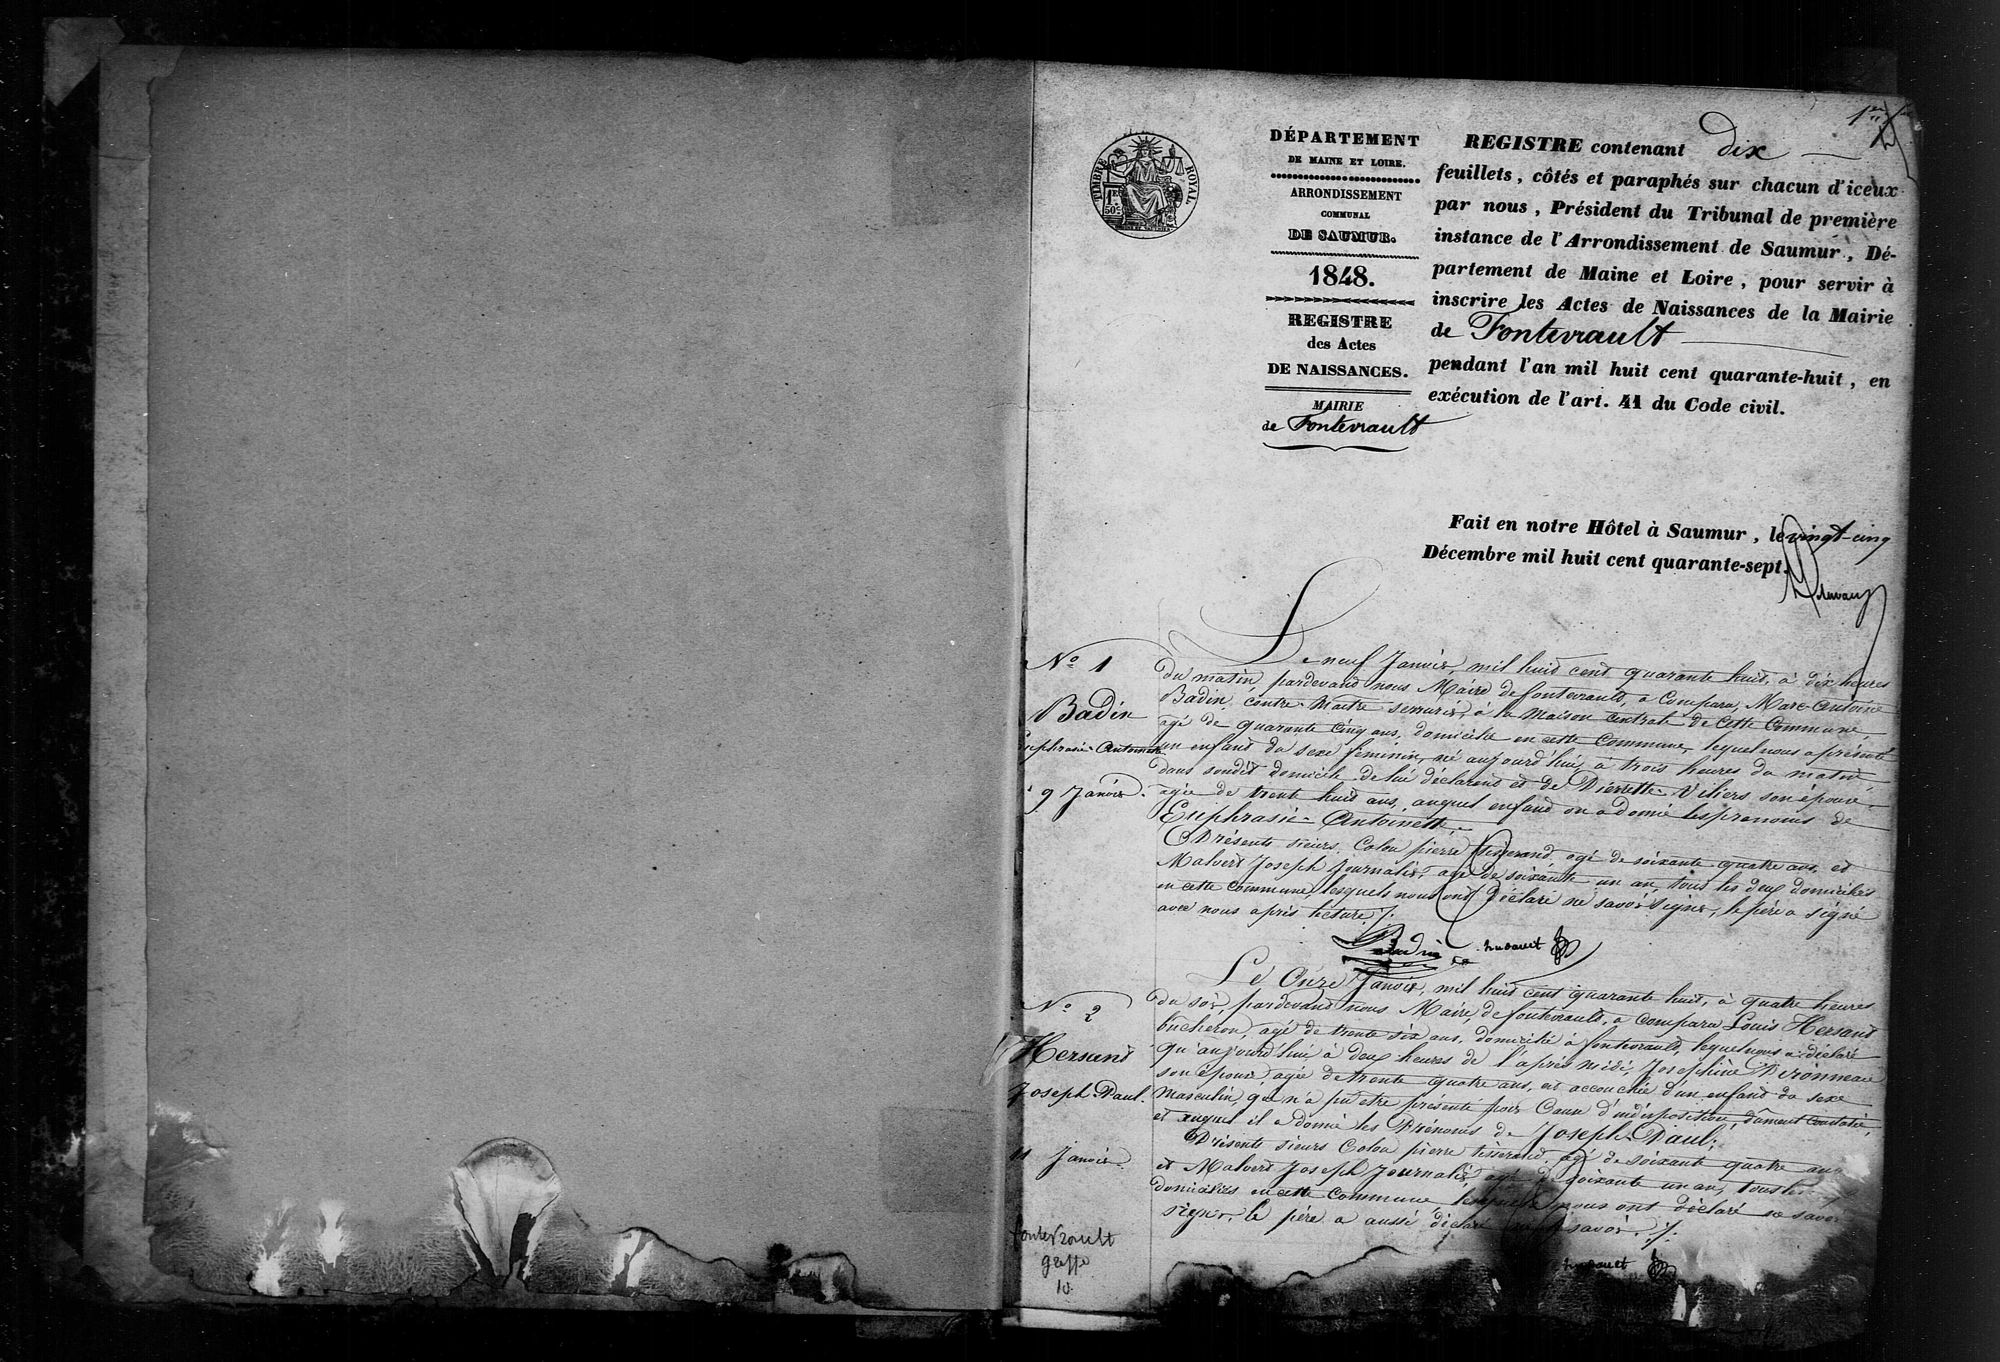 1er
TIMBRE ROYAL
1F
50c
DÉPARTEMENT
DE MAINE ET LOIRE.
ARRONDISSEMENT
COMMUNAL
DE SAUMUR.
1848.
REGISTRE
des Actes
DE NAISSANCES.
MAIRIE
de Fontevrault
REGISTRE contenant dix
feuillets, côtés et paraphés sur chacun d'iceux
par nous, Président du Tribunal de première
instance de l'Arrondissement de Saumur, Dé-
partement de Maine et Loire, pour servir à
inscrire les Actes de Naissances de la Mairie
de Fontevrault
pendant l'an mil huit cent quarante-huit, en
exécution de l'art. 41 du Code civil.
Fait en notre Hôtel à Saumur, le vingt-cinq
Décembre mil huit cent quarante-sept.
No 1
Badin
Euphrasie Antoinette
9 Janvier.
Le neuf Janvier, mil huit cent quarante huit, à dix heures
du matin, pardevant nous Maire de fontevrault, a Comparu, Marc Antoine
Badin, contre-Maitre serrurier, à la Maison centrale de cette Commune,
agé de quarante cinq ans, domicilié en cette Commune, lequel nous a présenté
un enfant du sexe féminin, né aujourd'hui, à trois heures du matin
dans sondit domicile de lui déclarant et de Pierrette Viliers son épouse
agée de trente huit ans, auquel enfant on a donné les prénoms de
Euphrasie Antoinette.
Présents sieurs, Colou pierre tisserand, agé de soixante quatre ans, et
Malvert Joseph Journalier, agé de soixante un an, tous les deux domiciliés
en cette commune, lesquels nous ont déclaré ne savoir signer, le père a signé
avec nous après lecture ./.
Badin hudault
No 2
Hersant
Joseph Paul.
11 Janvier.
Le Onze Janvier, mil huit cent quarante huit, à quatre heures
du soir, pardevant nous Maire, de fontevrault, a comparu Louis Hersant
bucheron, agé de trente six ans, domicilié à fontevrault, lequel nous a déclaré
qu'aujourd'hui à deux heures de l'après midi, Joséphine Péronneau
son épouse, agée de trente quatre ans, est accouchée d'un enfant du sexe
masculin, qui n'a pu etre présenté pour Cause d'indisposition, dument constatée,
et auquel il a donné les Prénoms de Joseph Paul;
Présents sieurs Colou pierre tisserand, agé de soixante quatre ans
et Malvert Joseph Journalier, agé de soixante un an, tous les
domiciliés en cette commune, lesquels nous ont déclaré ne savoir
signer, le père a aussi déclaré ne savoir ./.
hudault
fontevrault
greffe
10